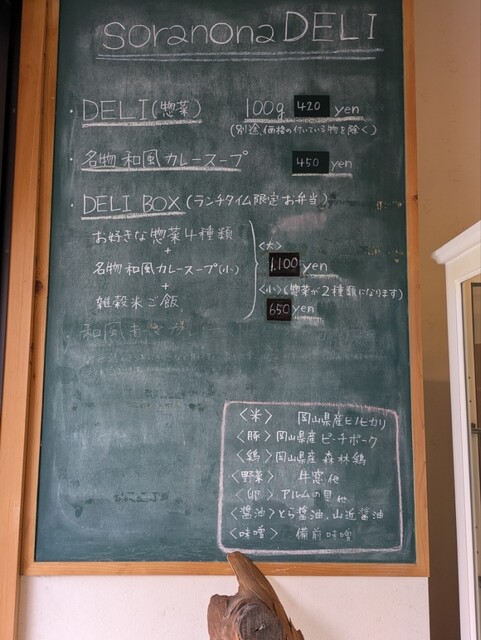 soranona DELI
・DELI(惣菜) 100g 420 yen
(別途価格の付いている物を除く)
・名物 和風カレースープ 450 yen
・DELI BOX (ランチタイム限定お弁当)
お好きな惣菜4種類
+
名物 和風カレースープ(小)
+
雑穀米ご飯
<大>
1,100 yen
<小>(惣菜が2種類になります)
650 yen
<米> 岡山県産ヒノヒカリ
<豚> 岡山県産 ピーチポーク
<鶏> 岡山県産 森林鶏
<野菜> 牛窓 他
<卵> アルムの里 他
<醤油> とら醤油、山近醤油
<味噌> 備前味噌